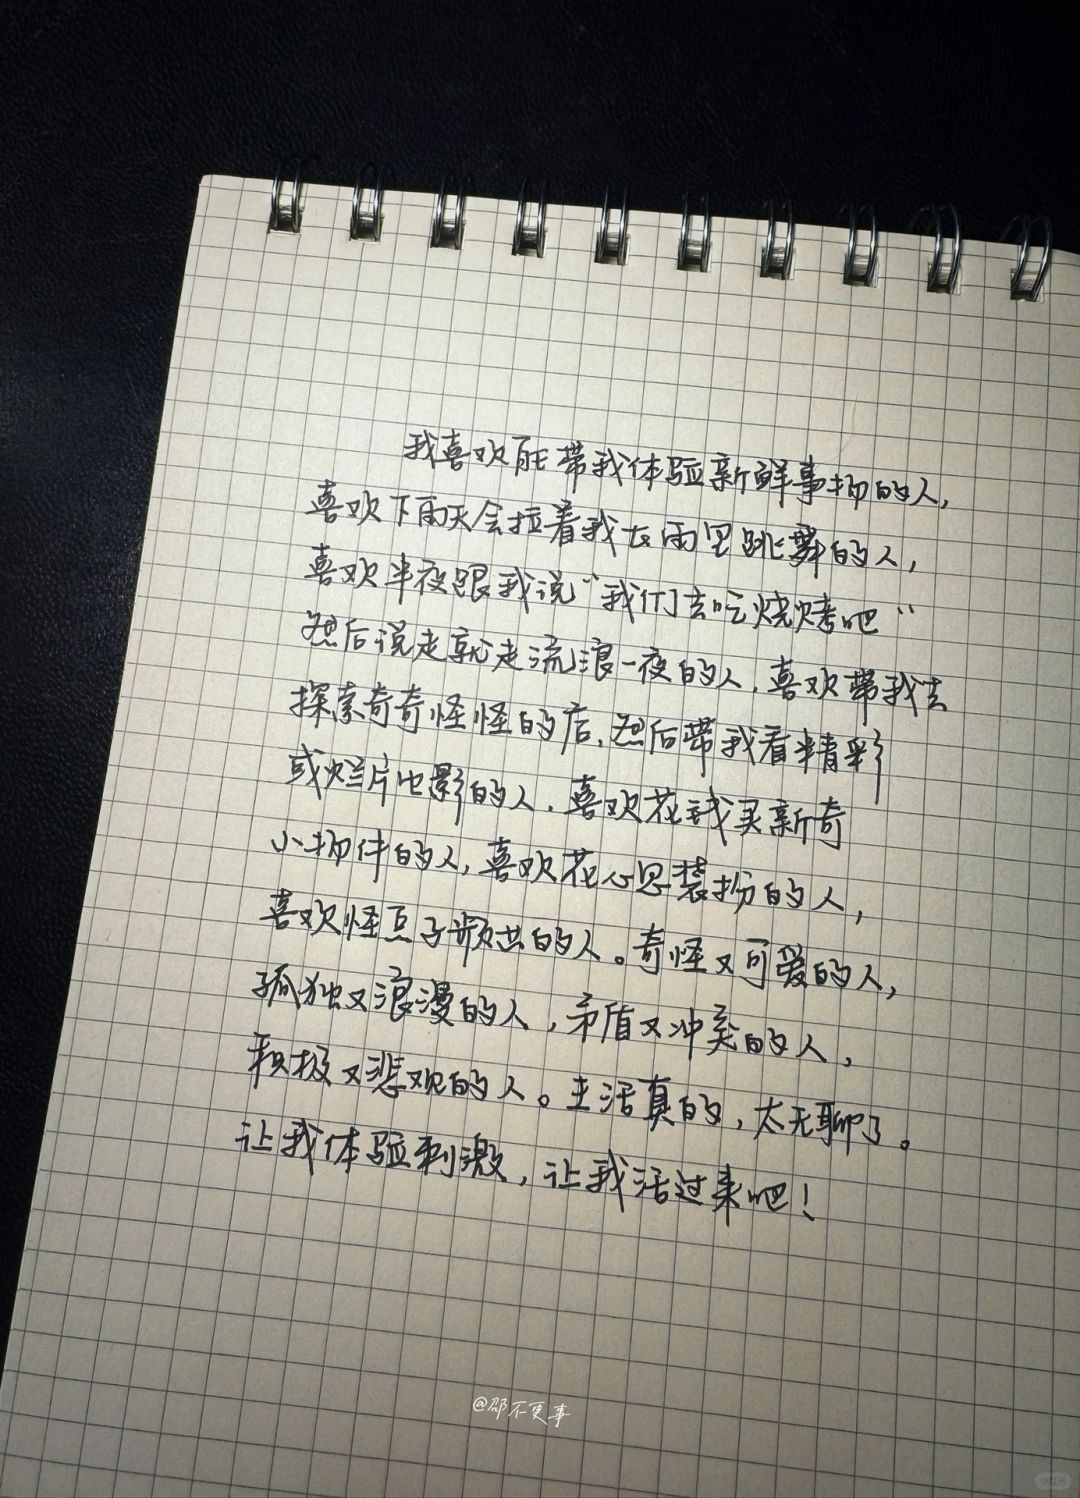 我喜欢能带我体验新鲜事物的人,
喜欢下雨天会拉着我在雨里跳舞的人,
喜欢半夜跟我说“我们去吃烧烤吧”
然后说走就走流浪一夜的人,喜欢带我去
探索奇奇怪怪的店,然后带我看精彩
或烂片电影的人,喜欢花钱买新奇
小物件的人,喜欢花心思装扮的人,
喜欢怪点子频出的人。奇怪又可爱的人,
孤独又浪漫的人,矛盾又冲突的人,
积极又悲观的人。生活真的,太无聊了。
让我体验刺激,让我活过来吧!
@邵不更事
小红书